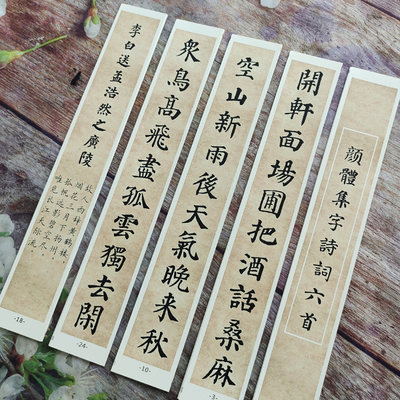 颜體集字詩詞六首
開軒面場圃把酒話桑麻
-3-
空山新雨後天氣晚来秋
-10-
衆鳥髙飛盡孤雲獨去閑
-24-
李白送孟浩然之廣陵
故人西辞黄鹤楼，
烟花三月下扬州。
孤帆远影碧空尽，
唯见长江天际流。
-18-